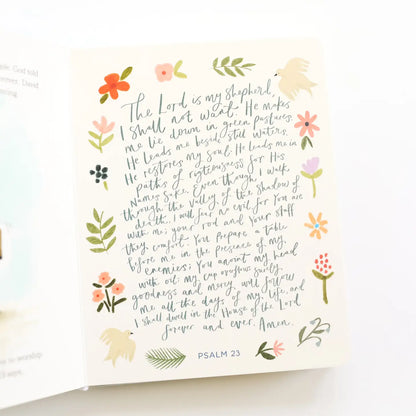 ple. God told
orever. David
ncing.
The Lord is my shepherd,
I shall not want. He makes
me lie down in green pastures.
He leads me beside still waters.
He restores my soul. He leads me in
paths of righteousness for His
Names Sake. Even though I walk
through the valley of the Shadow of
death, I will fear no evil for You are
with me; your rod and Your staff
they comfort. You prepare a table
before me in the presence of my
enemies; You anoint my head
with oil; my cup overflows. Surely
goodness and mercy will follow
me all the days of my life, and
I shall dwell in the House of the Lord
forever and ever, Amen.
PSALM 23
to worship
ways.